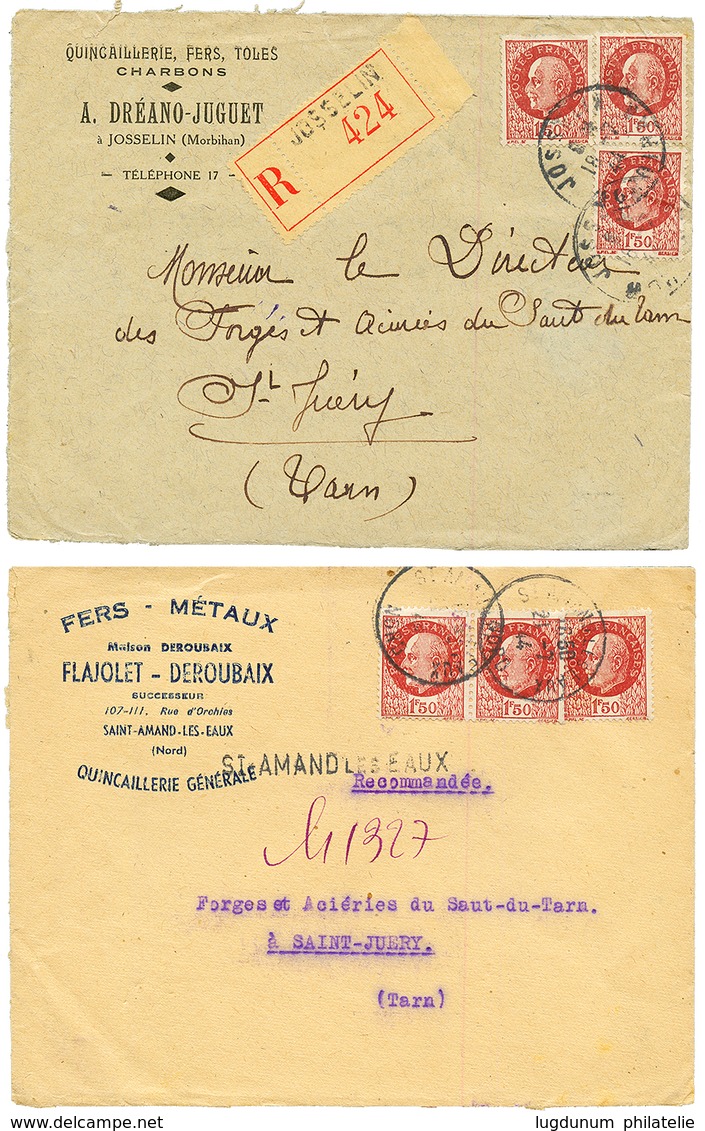 QUINCAILLERIE, FERS, TOLES
CHARBONS
A. DRÉANO-JUGUET
à JOSSELIN (Morbihan)
TÉLÉPHONE 17
R
JOSSELIN
424
POSTES FRANÇAISES
1F50
POSTES FRANÇAISES
1F50
POSTES FRANÇAISES
1F50
Monsieur le Directeur
des Forges et Aciéries du Saut du Tarn
St Juéry
(Tarn)
FERS - MÉTAUX
Maison DEROUBAIX
FLAJOLET - DEROUBAIX
SUCCESSEUR
107-111, Rue d'Orchies
SAINT-AMAND-LES-EAUX
(Nord)
QUINCAILLERIE GÉNÉRALE
1F50
1F50
1F50
ST-AMAND LES EAUX
Recommandée.
1327
Forges et Aciéries du Saut-du-Tarn.
à SAINT-JUERY.
(Tarn)
www.delcampe.net
lugdunum philatelie